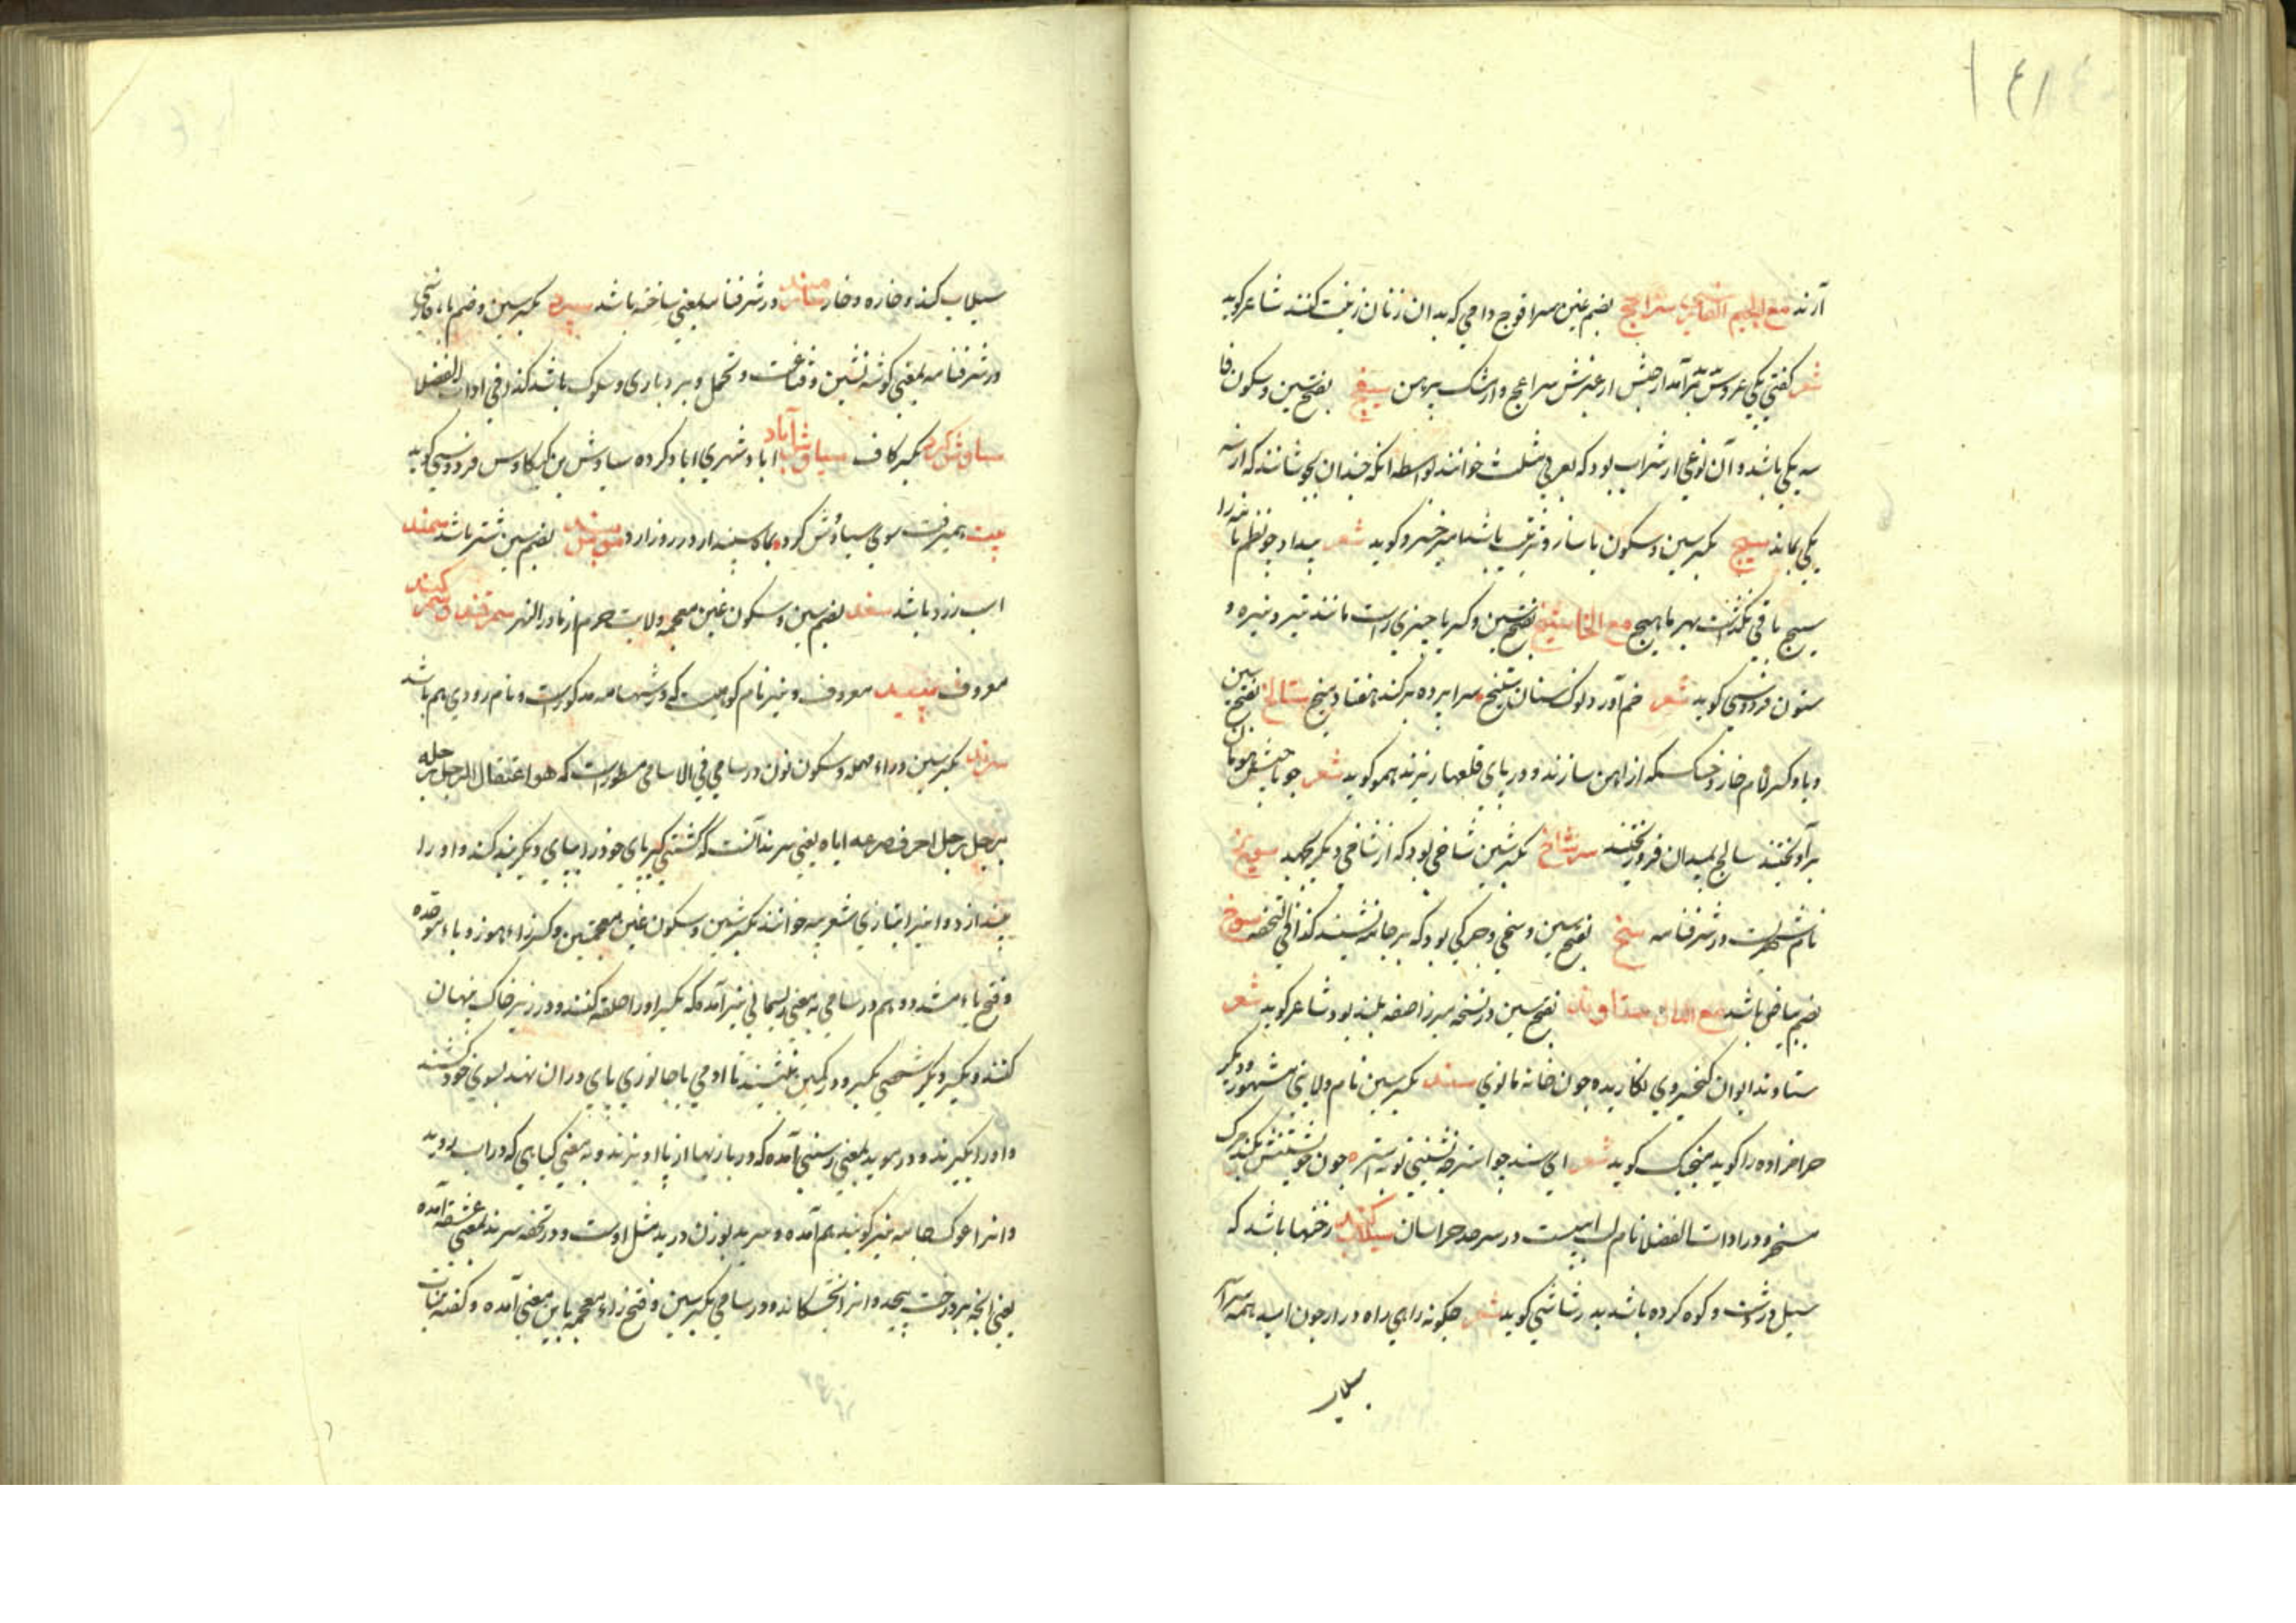 ١٤١
آرند مع الجیم الفارسی سراغج بضم غین سراقوج دامی که بدان زنان زینت کنند شاعر کوید
شعر کفتی یکی عروس برآمد از حبش از عنبرش سراغج و از مشک پیرهن سیفج بفتح سین و سکون فا
سه یکی باشد و آن نوعی از شراب بود که بعربی مثلث خوانند بواسطه انکه چندان بجوشانند که از سه
یکی بماند سیج بکسر سین و سکون یا ساز و ترتیب باشد امیر خسرو کوید شعر بیداد چو نظم نامه را
سیج باقی نکذاشت بهر ما هیچ مع الخا ستیخ بفتح سین و کسر یا چیزی راست مانند تیر و نیزه و
ستون فردوسی کوید شعر خم آورد نوک سنان ستیخ سراپرده برکند هفتاد میخ سالخ بفتح سین
و با و کسر لام خار و خسک که از اهن سازند و در پای قلعها ریزند هم کوید شعر چو با جیش
برآویختند سالخ بمیدان فرو ریختند سرشاخ بکسر شین شاخی بود که از شاخی دیکر بجهد سوریخ
نام شهریست در شرفنامه سخ بفتح سین و سخی و چرکی بود که بر جامه نشیند کذا فی التحفه سوخ
بضم پیاض باشد مع الدال ستاوند بفتح سین در نسخه میرزا صفه بلند بود شاعر کوید شعر
ستاوند ایوان کیخسروی نکاریده چون خانه مانوی سند بکسر سین نام ولایتی مشهور و دیکر
حرامزاده را کوید منجیک کوید شعر ای سند چو استر چه نشینی تو بر استر چون خویشتنش کند خر
مسخر و در ادات الفضلا نام ولایت در سرحد خراسان سیلاب کند زخمها باشد که
سیل در دشت و کوه کرده باشد بدر شاشی کوید شعر چکونه راهی راه دراز چون امید همه سراسر
سیلاب
سیلاب کند و خاره و خار سامند در شرفنامه بمعنی ساخته باشد سپرد بکسر سین و ضم باء فارسی
در شرفنامه بمعنی کوشه نشین و قناعت و تحمل و بردباری و سلوک باشد کذا فی ادات الفضلا
سیاوش کرد بکسر کاف سیاوش آباد اباد شهری اباد کرده سیاوش بن کیکاوس فردوسی کوید
بیت همیرفت سوی سیاوش کرد بماه سپندار در روز ارد بضم سین شتر باشد سمند
اسب زرد باشد سغد بضم سین و سکون غین معجمه ولایت خرم از ماورالنهر سمرقند و سمرکند
معروف سپید معروف و نیز نام کوهیست که در شهنامه مذکورست و نام رودی هم باشد
سرند بکسر سین و راء مهمله و سکون نون در سامی فی الاسامی مسطورست که هو اعتقال الرجل رجله
برجل رجل اخر فصرعه ایاه یعنی سرند آنست که کشتی کیر پای خود را بپای دیکر بند کند و او را
بیندازد و انرا بتازی شغربیه خوانند بکسر شین و سکون غین معجمتین و کسر زاء هوز و باء موحده
و فتح یاء مشدده و هم در سامی بمعنی ریسمانی نیز آمده که بکسر او را حلقه کنند و در زیر خاک پنهان
کنند و یکسر دیکر شخصی بکیرد و در کمین نشیند تا ادمی یا جانوری پای در ان نهد بسوی خود کشند
و او را بکیرند و در موید بمعنی رسنی آمده که در بازیها از پا اویزند و به معنی کیاهی که در اب روید
و انرا غوک جامه نیز کویند هم آمده و سرید بوزن درید مثل اوست و در تحفه سرند بمعنی عشقه آمده
یعنی انچه بر درخت پیچد و انرا بخشکاند و در سامی بکسر سین و فتح زاء معجمه باین معنی آمده و کفته نبات